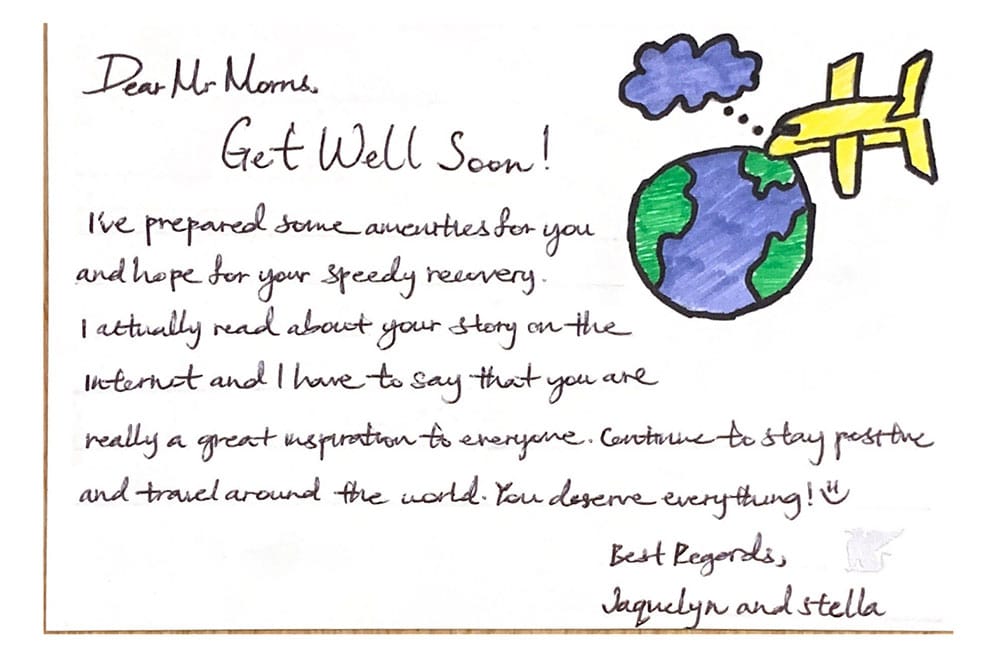 Dear Mr Morris,
Get Well Soon!
I've prepared some amenities for you
and hope for your speedy recovery.
I actually read about your story on the
Internet and I have to say that you are
really a great inspiration to everyone. Continue to stay positive
and travel around the world. You deserve everything!
Best Regards,
Jaquelyn and Stella